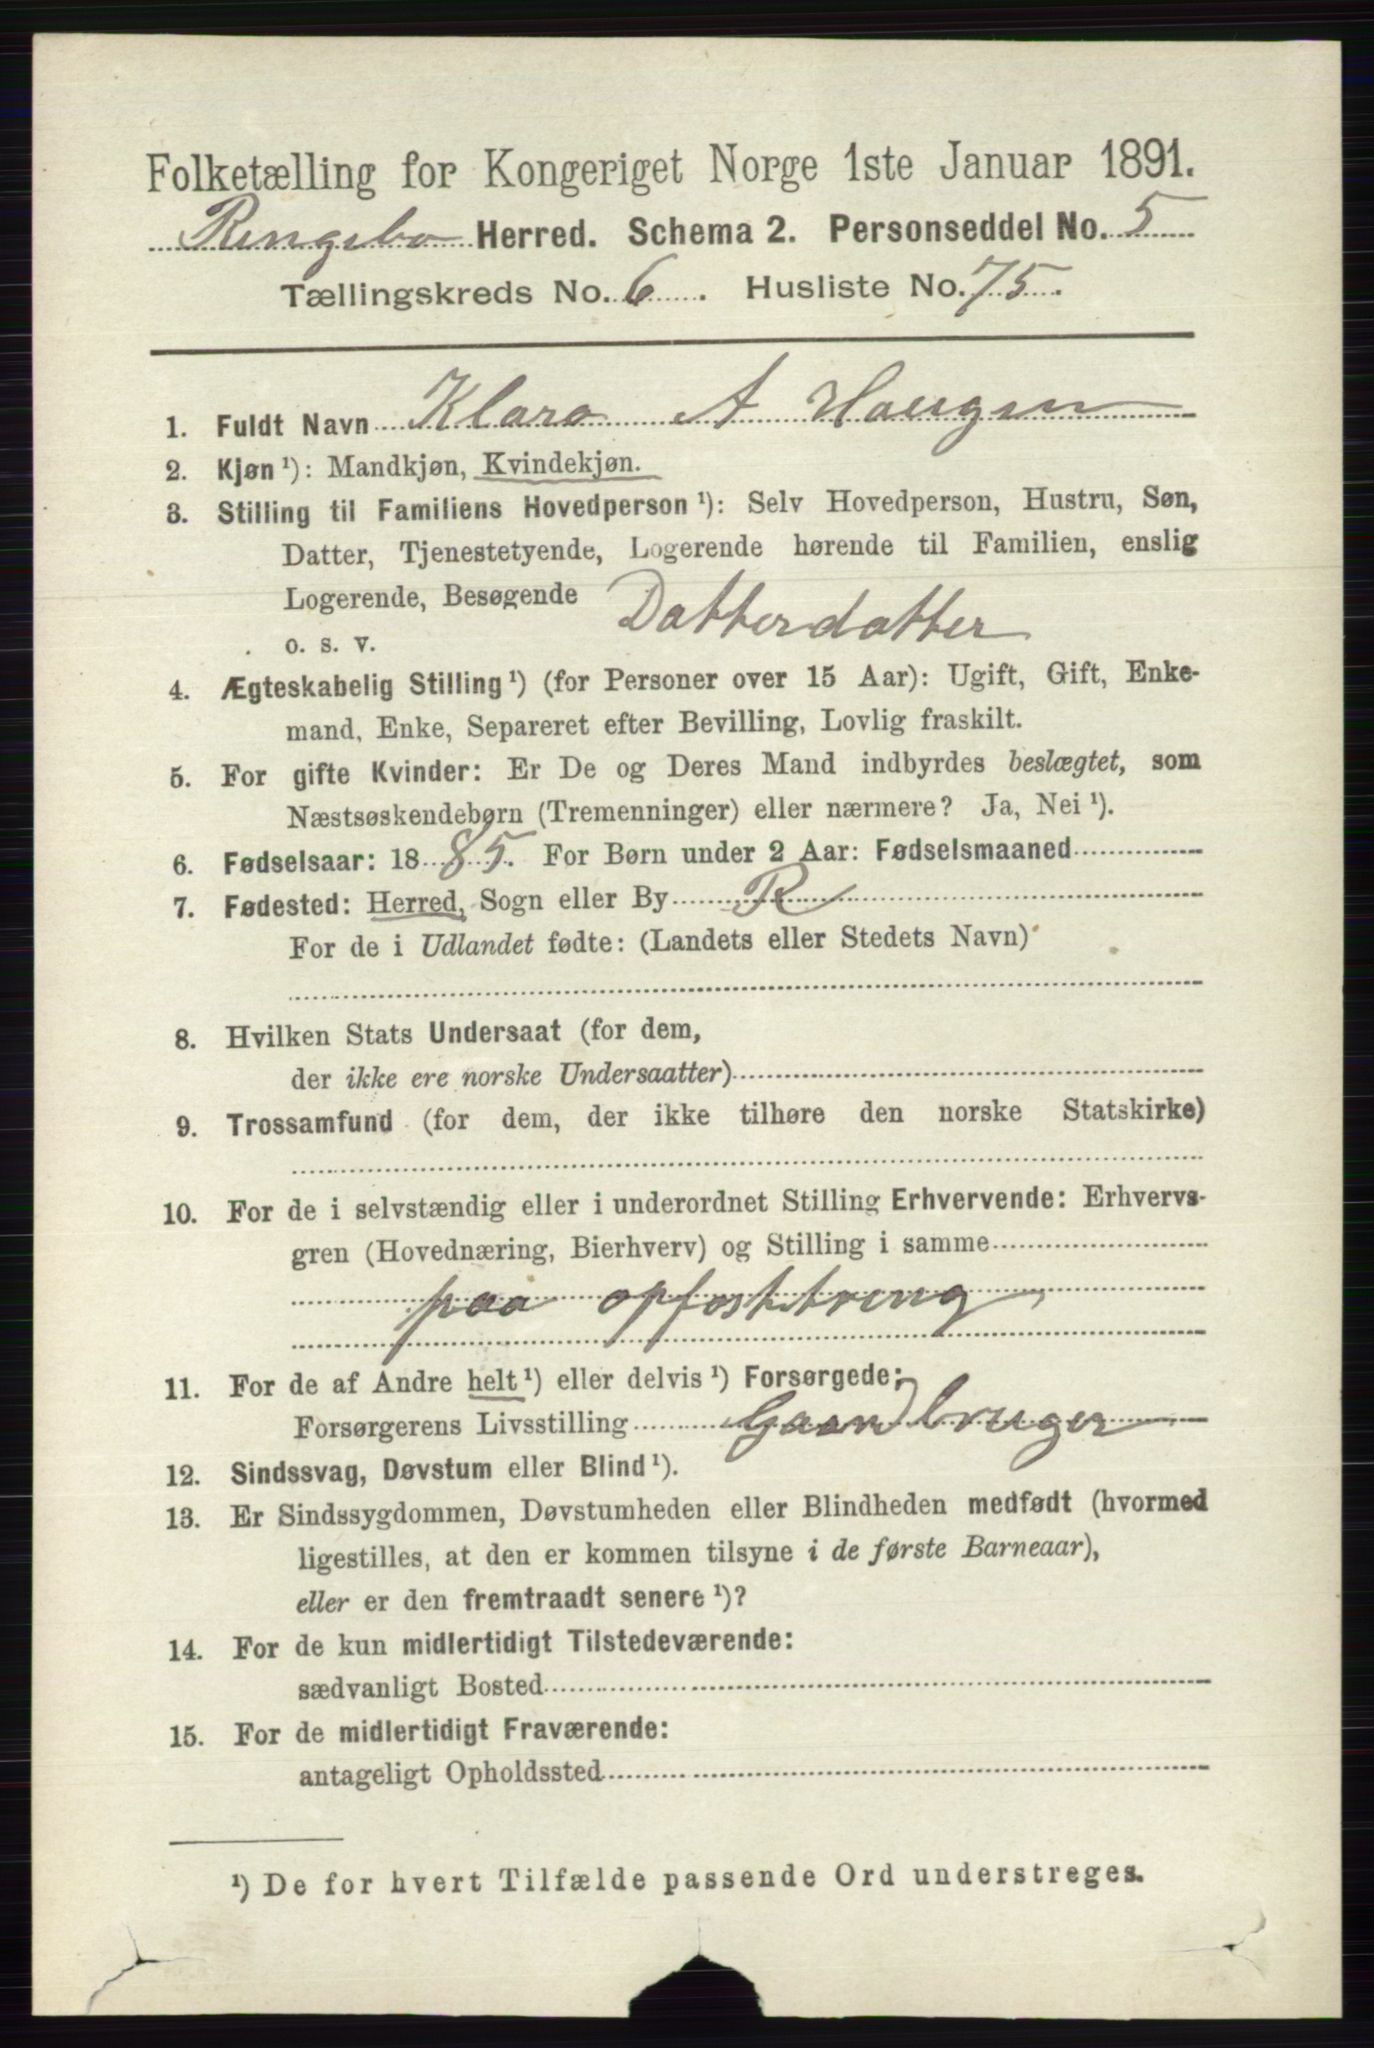 Folketælling for Kongeriget Norge 1ste Januar 1891.
Ringebo Herred. Schema 2. Personseddel No. 5
Tællingskreds No. 6. Husliste No. 75.
1. Fuldt Navn Klara A Haugen
2. Kjøn ¹): Mandkjøn, Kvindekjøn.
3. Stilling til Familiens Hovedperson ¹): Selv Hovedperson, Hustru, Søn,
Datter, Tjenestetyende, Logerende hørende til Familien, enslig
Logerende, Besøgende Datterdatter
o. s. v.
4. Ægteskabelig Stilling ¹) (for Personer over 15 Aar): Ugift, Gift, Enke-
mand, Enke, Separeret efter Bevilling, Lovlig fraskilt.
5. For gifte Kvinder: Er De og Deres Mand indbyrdes beslægtet, som
Næstsøskendebørn (Tremenninger) eller nærmere? Ja, Nei ¹).
6. Fødselsaar: 1885. For Børn under 2 Aar: Fødselsmaaned
7. Fødested: Herred, Sogn eller By R
For de i Udlandet fødte: (Landets eller Stedets Navn)
8. Hvilken Stats Undersaat (for dem,
der ikke ere norske Undersaatter)
9. Trossamfund (for dem, der ikke tilhøre den norske Statskirke)
10. For de i selvstændig eller i underordnet Stilling Erhvervende: Erhvervs-
gren (Hovednæring, Bierhverv) og Stilling i samme
paa opfostring
11. For de af Andre helt ¹) eller delvis ¹) Forsørgede:
Forsørgerens Livsstilling Gaardbruger
12. Sindssvag, Døvstum eller Blind ¹).
13. Er Sindssygdommen, Døvstumheden eller Blindheden medfødt (hvormed
ligestilles, at den er kommen tilsyne i de første Barneaar),
eller er den fremtraadt senere ¹)?
14. For de kun midlertidigt Tilstedeværende:
sædvanligt Bosted
15. For de midlertidigt Fraværende:
antageligt Opholdssted
¹) De for hvert Tilfælde passende Ord understreges.